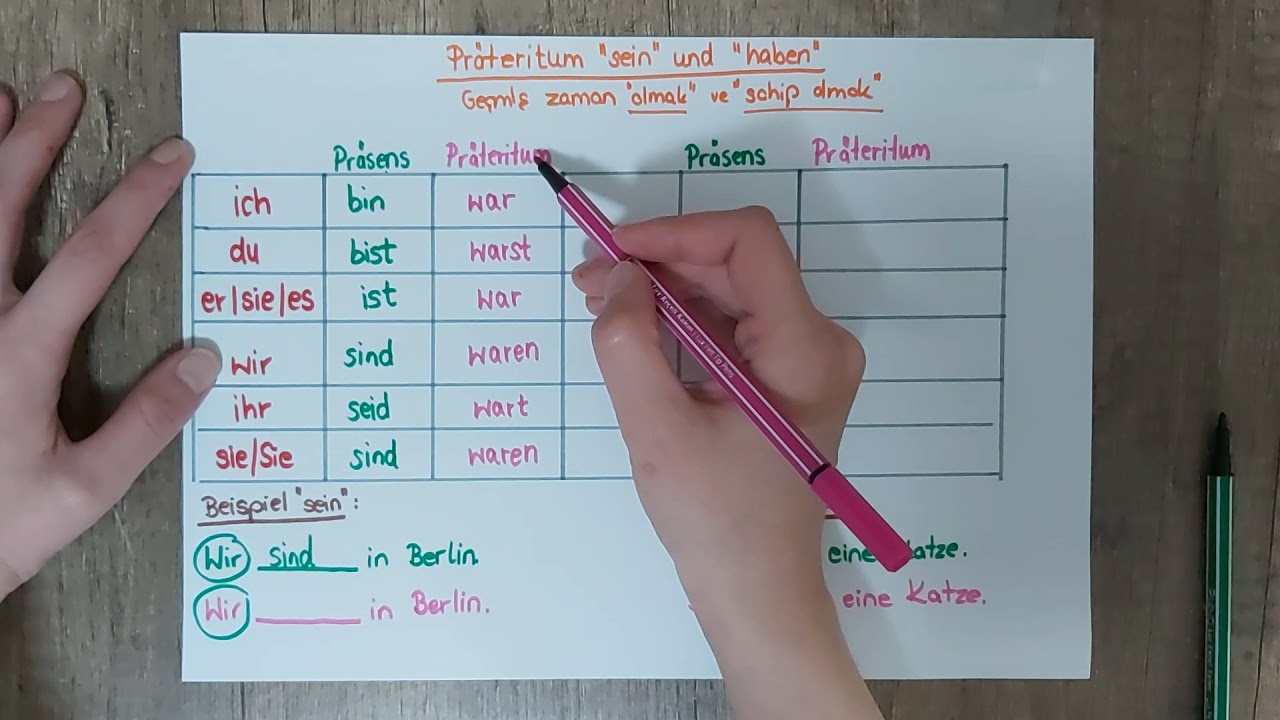 Präteritum "sein" und "haben"
Geçmiş zaman "olmak" ve "sahip olmak"
Präsens Präteritum Präsens Präteritum
ich bin war
du bist warst
er/sie/es ist war
wir sind waren
ihr seid wart
sie/Sie sind waren
Beispiel "sein":
Wir sind in Berlin. eine Katze.
Wir ______ in Berlin. eine Katze.